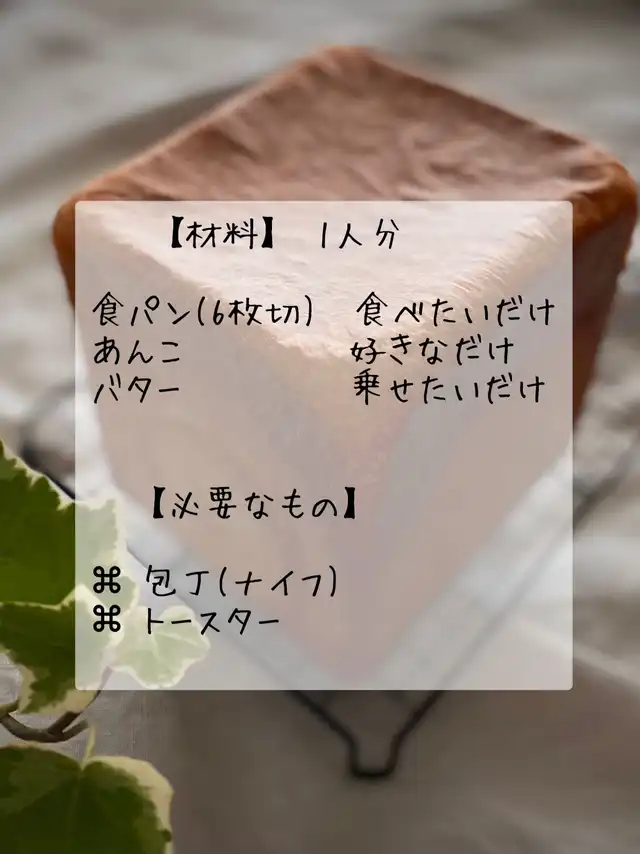 【材料】 1人分
食パン(6枚切) 食べたいだけ
あんこ 好きなだけ
バター 乗せたいだけ
【必要なもの】
⌘ 包丁(ナイフ)
⌘ トースター